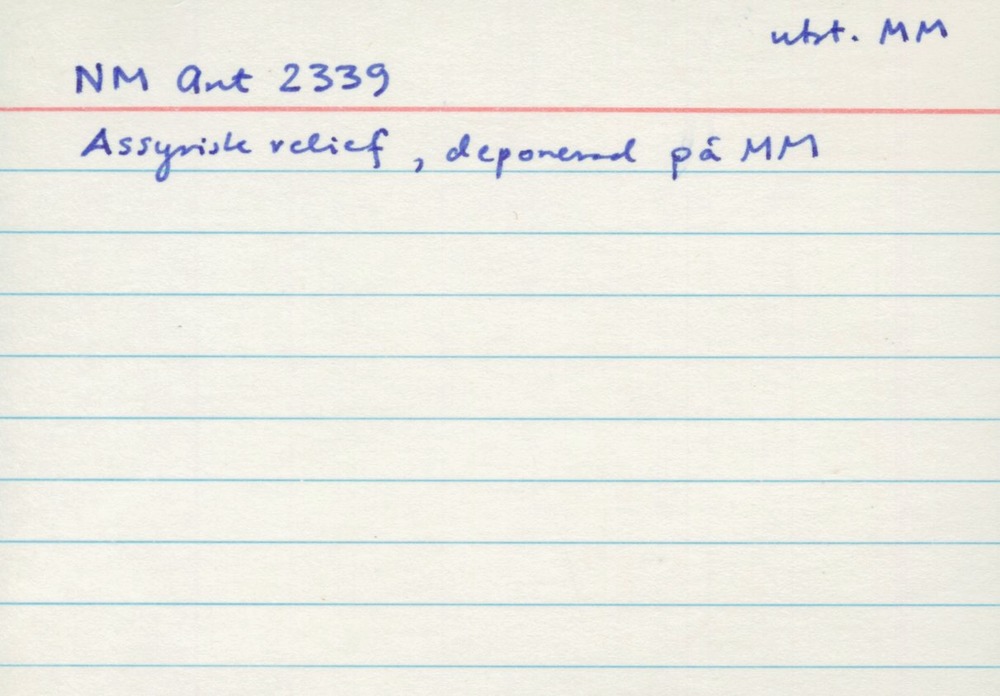 utst. MM
NM Ant 2339
Assyrisk relief, deponerad på MM